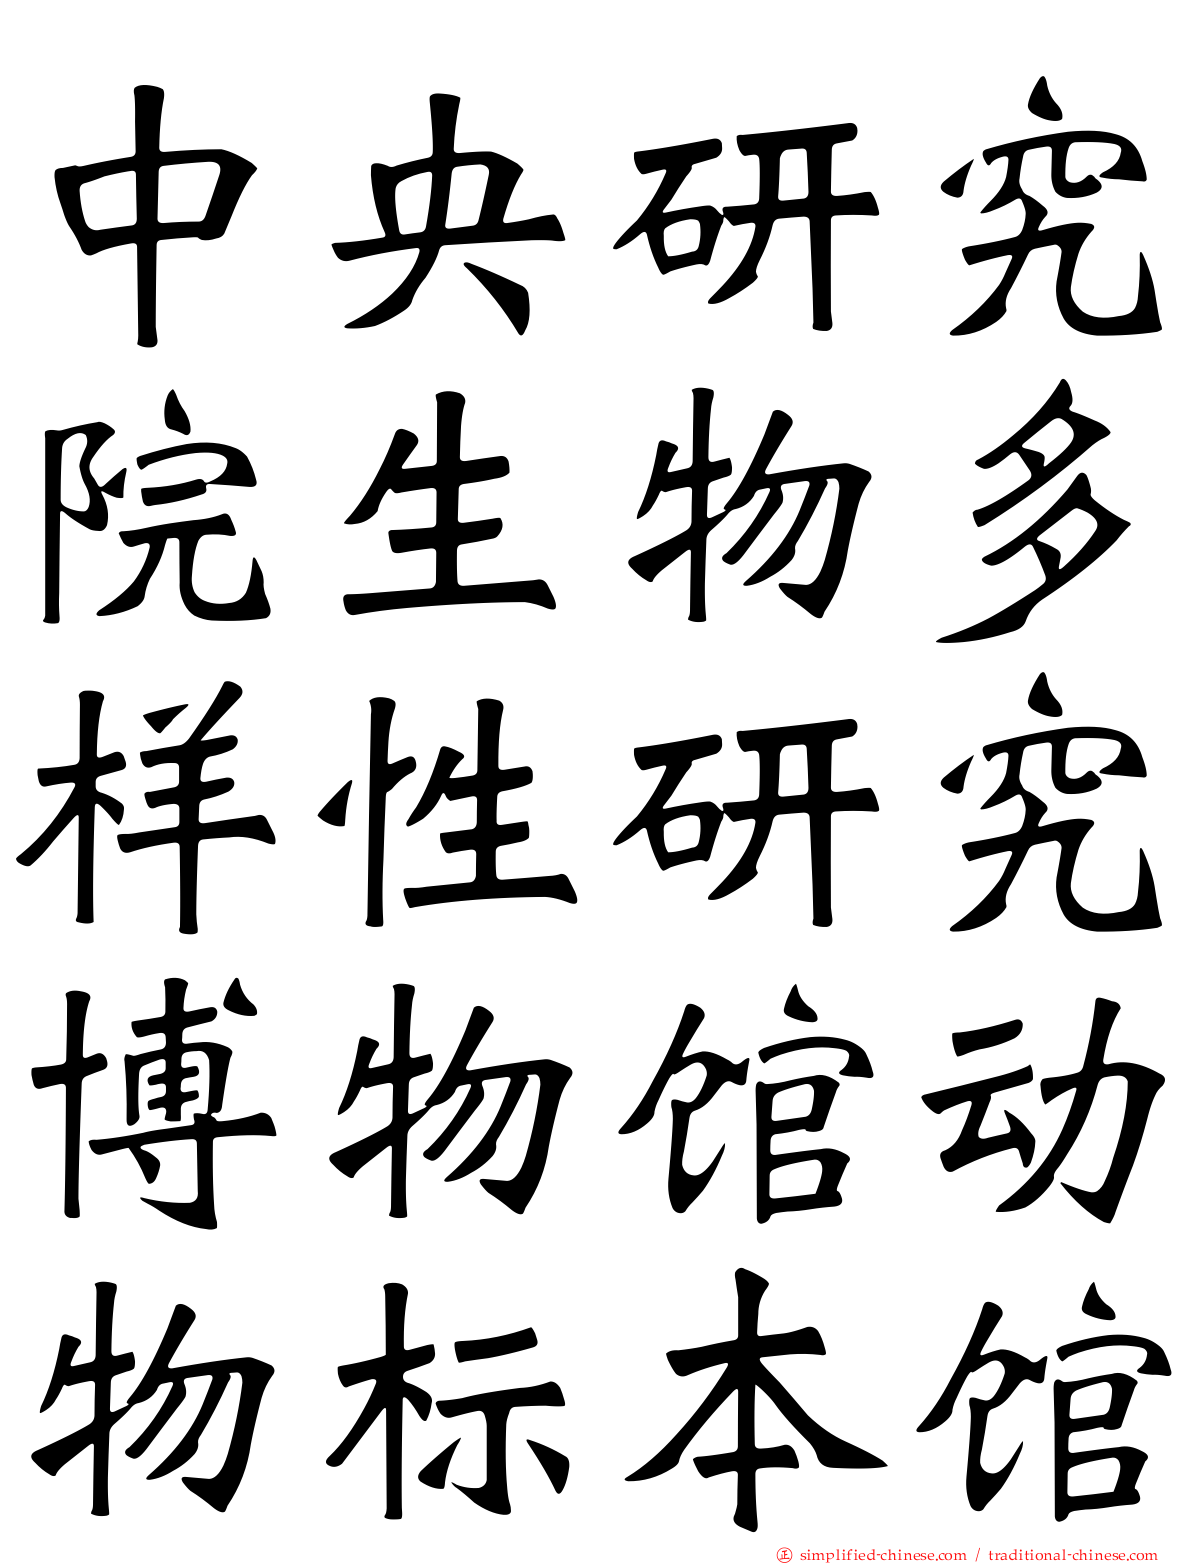 中央研究
院生物多
样性研究
博物馆动
物标本馆
正 simplified-chinese.com / traditional-chinese.com